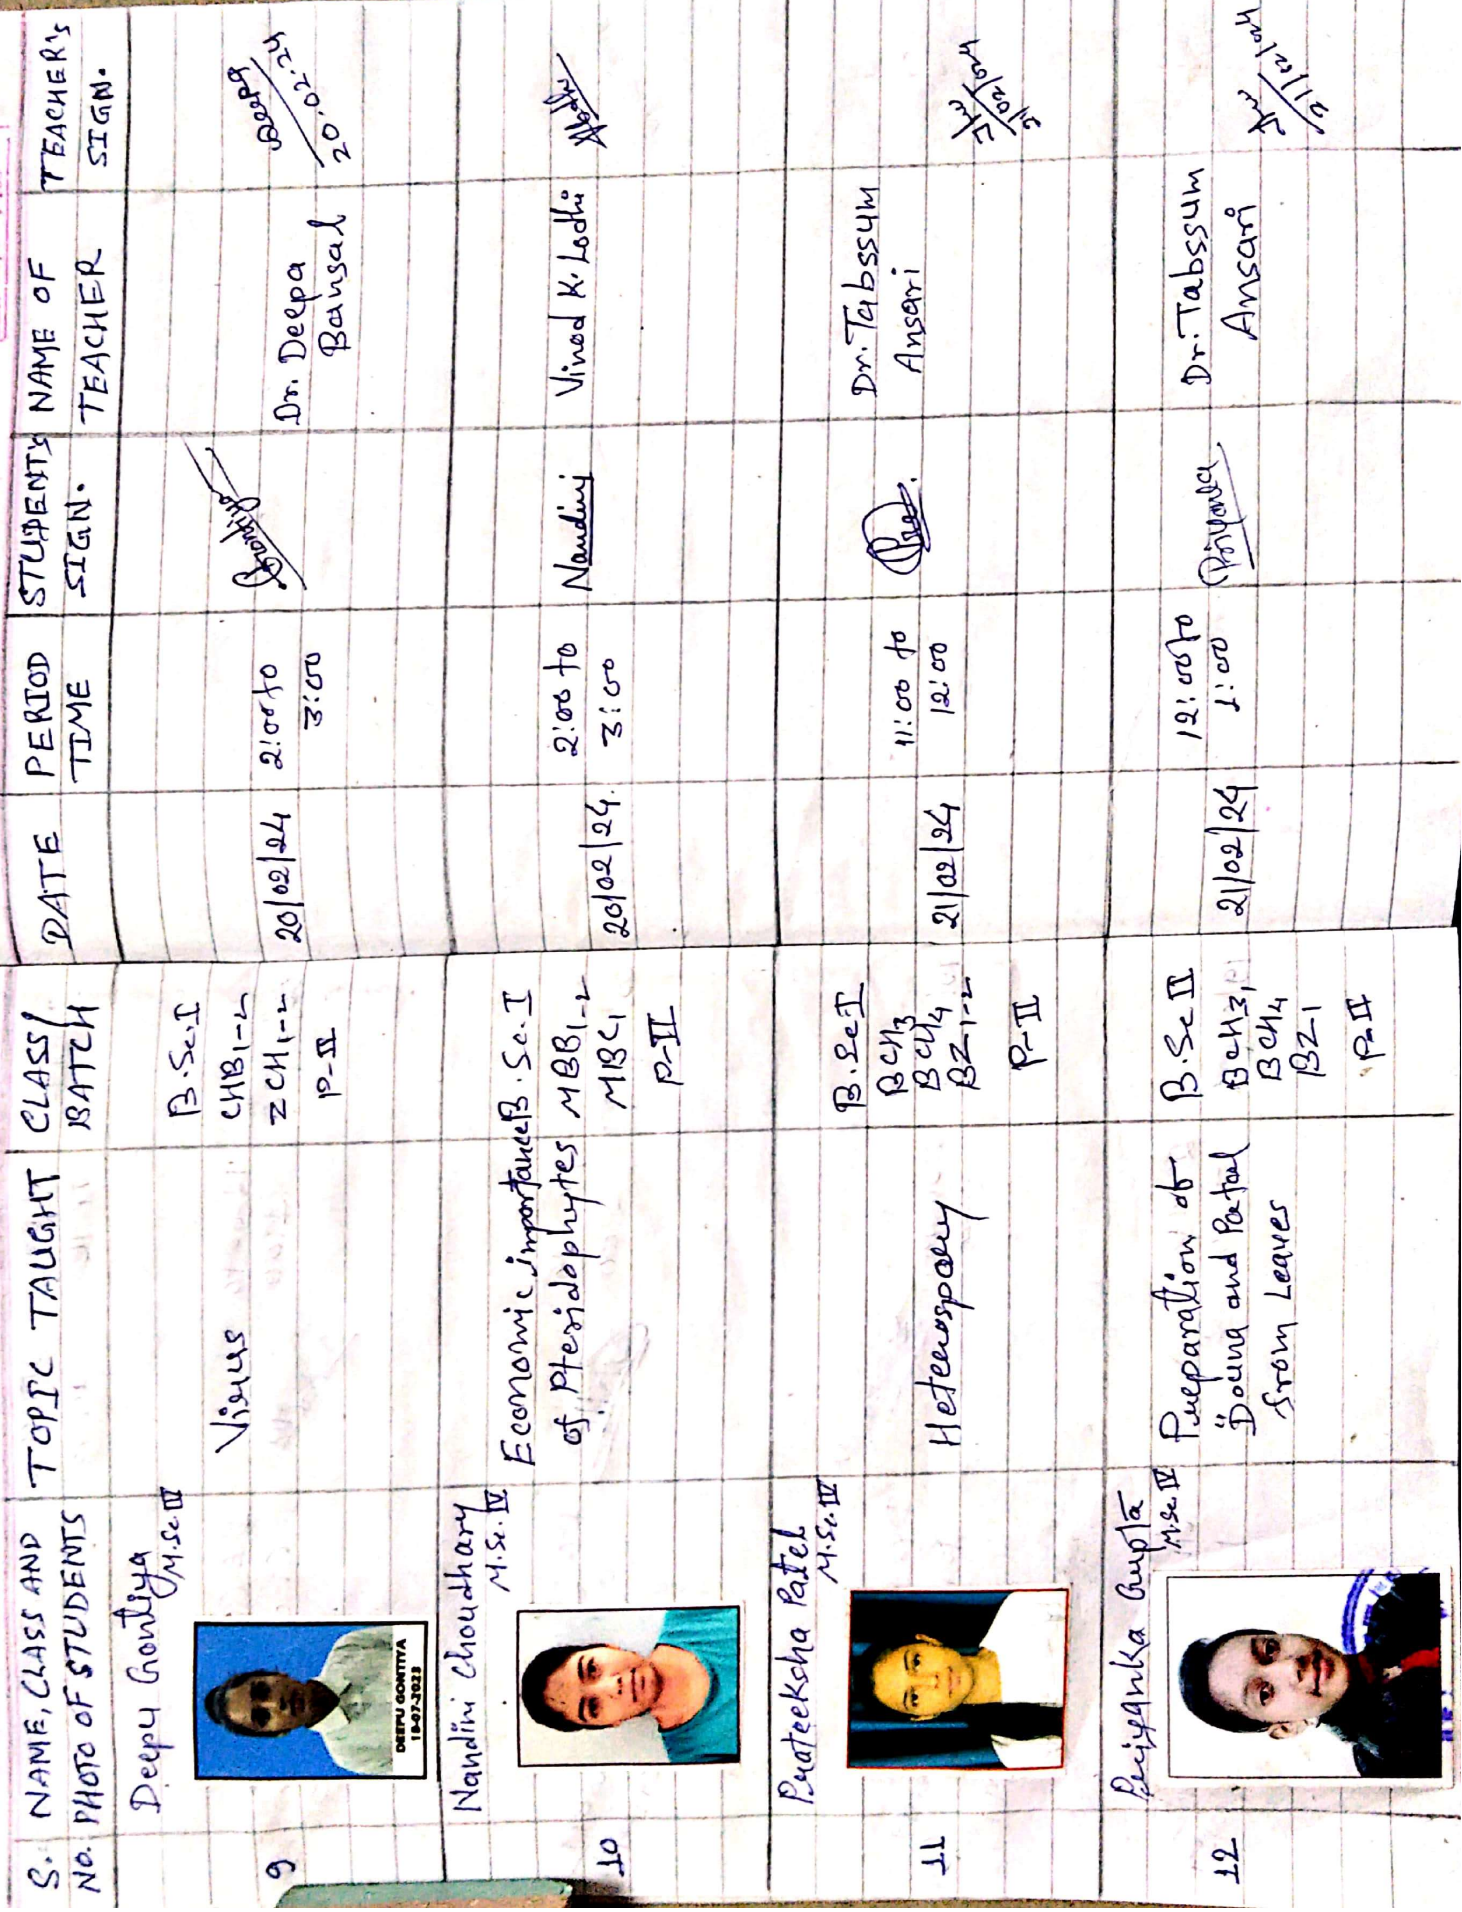 S. No.
NAME, CLASS AND
PHOTO OF STUDENTS
TOPIC TAUGHT
CLASS/
BATCH
DATE
PERIOD
TIME
STUDENT'S
SIGN.
NAME OF
TEACHER
TEACHER'S
SIGN.
9
Deepu Gontiya
M.Sc. IV
DEEPU GONTIYA
18-07-2023
Virus
B.Sc. I
CHB1-2
ZCH1-2
P-II
20/02/24
2:00 to
3:00
Dr. Deepa
Bansal
Deepa
20.02.24
10
Nandini Choudhary
M.Sc. IV
Economic importance
of Pteridophytes
B.Sc. I
MBB1-2
MBC1
P-II
20/02/24.
2:00 to
3:00
Nandini
Vinod K. Lodhi
11
Prateeksha Patel
M.Sc. IV
Heterospory
B.Sc I
BCH3
BCH4
BZ1-2
P-II
21/02/24
11:00 to
12:00
Dr. Tabssum
Ansari
21/02/024
12
Priyanka Gupta
M.Sc IV
Preparation of
Douna and Pattal
from Leaves
B.Sc II
BCH3,
BCH4
BZ1
P-II
21/02/24
12:00 to
1:00
Priyanka
Dr. Tabssum
Ansari
21/02/024